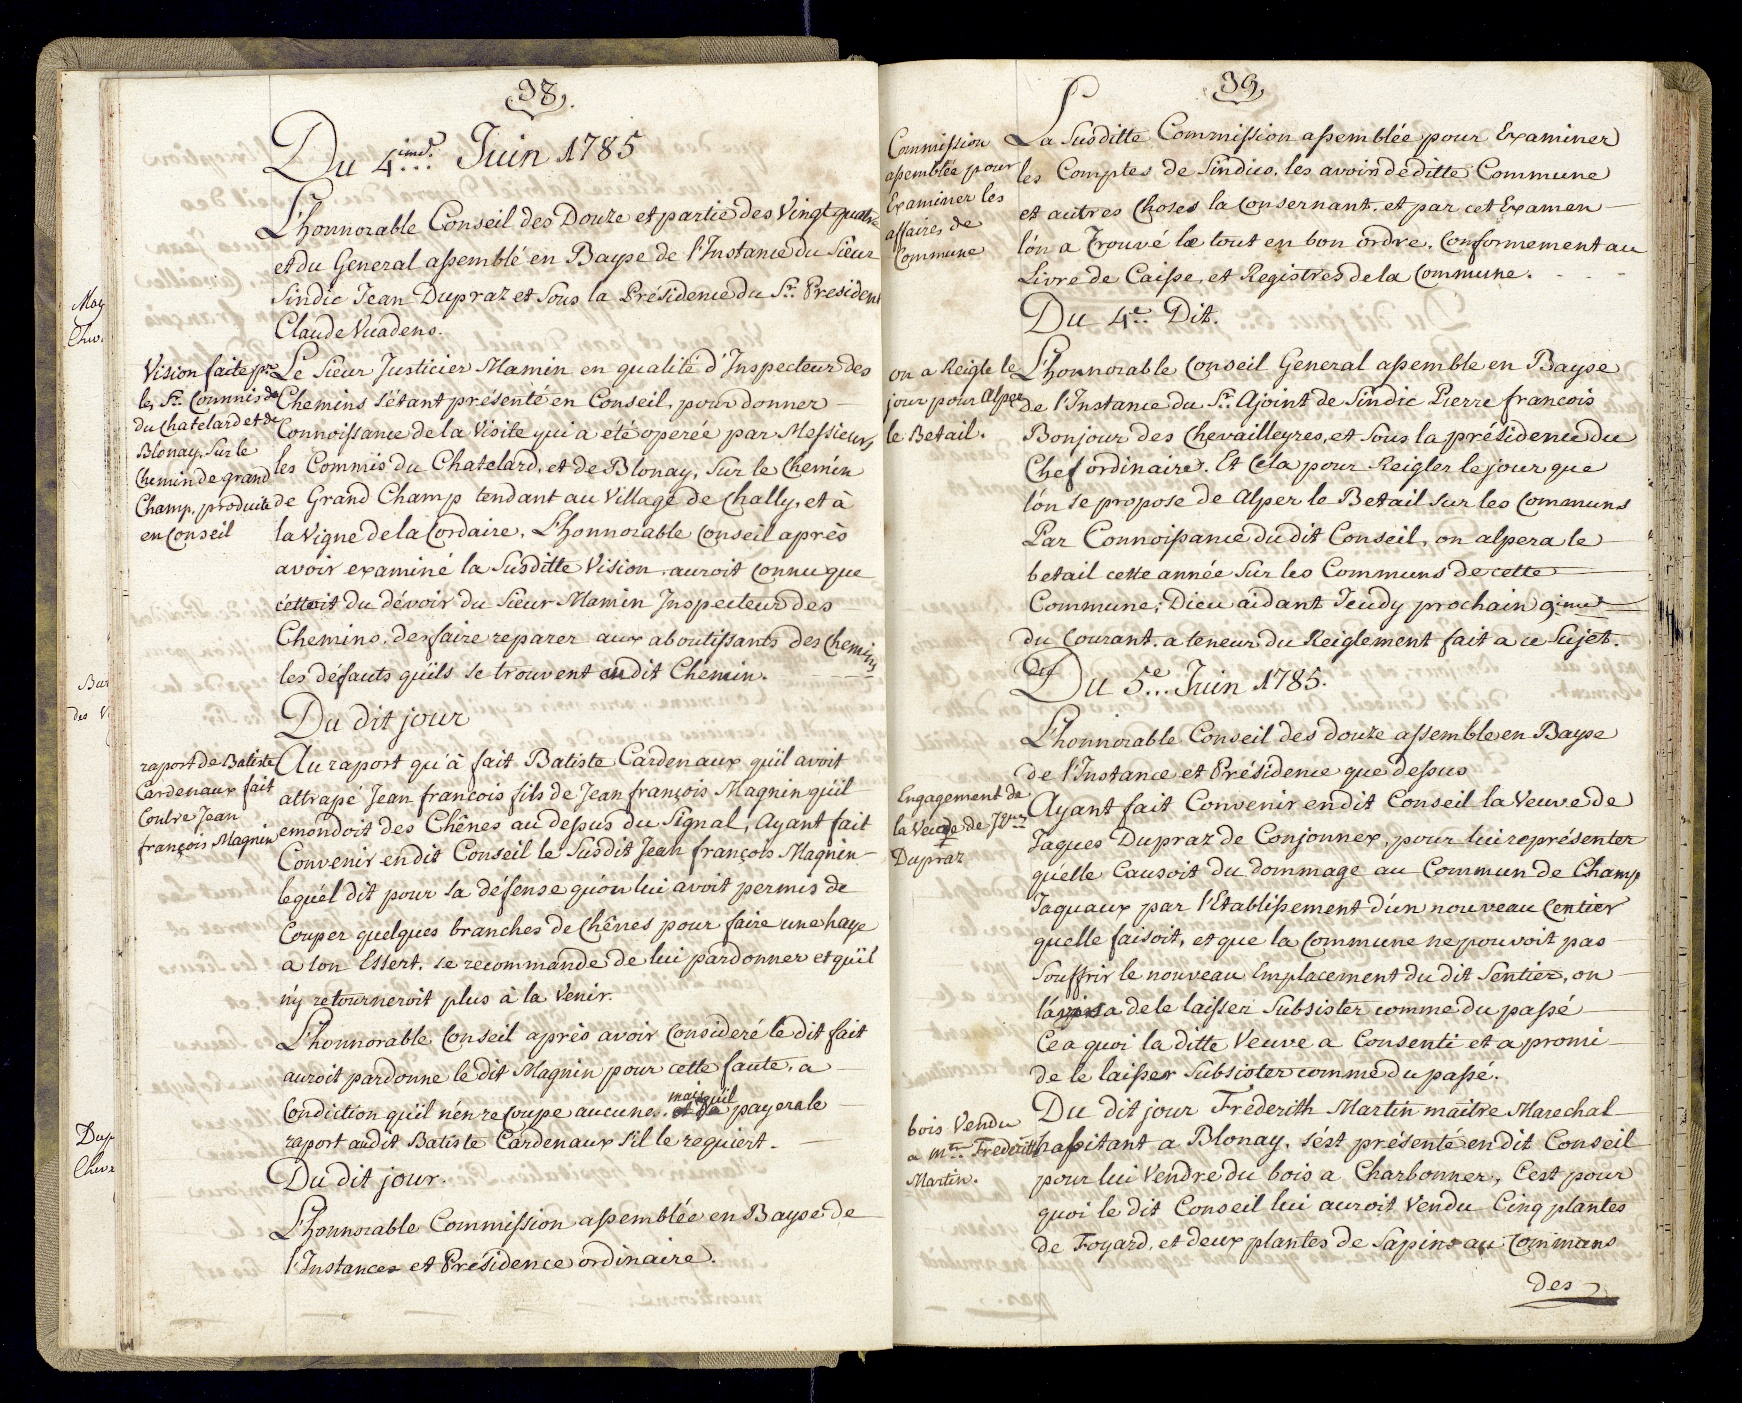 38.
Du 4.ime Juin 1785
L'honnorable Conseil des Douze et partie des Vingt quatre
et du General assemblé en Bayse de l'Instance du Sieur
Sindic Jean Dupraz et Sous la Présidence du Sr. President
Claude Vuadens.
Vision faite pr.
les Srs. Commis de
du Chatelard et de
Blonay, Sur le
Chemin de grand
Champ, produite
en Conseil
Le Sieur Justicier Mamin en qualité d'Inspecteur des
Chemins s'étant présenté en Conseil, pour donner
Connoissance de la Visite qui a été operée par Messieurs
les Commis du Chatelard, et de Blonay, Sur le Chemin
de Grand Champ tendant au Village de Chally, et à
la Vigne de la Cordaire, L'honnorable Conseil après
avoir examiné la Susditte Vision auroit Connu que
c'ettoit du dévoir du Sieur Mamin Inspecteur des
Chemins, de faire reparer aux aboutissants des Chemins
les défauts qu'ils se trouvent audit Chemin.
Du dit jour
raport de Batiste
Cardenaux fait
Contre Jean
françois Magnin
Au raport qu'à fait Batiste Cardenaux qu'il avoit
attrapé Jean francois fils de Jean françois Magnin qu'il
emondoit des Chênes au dessus du Signal, Ayant fait
Convenir en dit Conseil le Susdit Jean françois Magnin
lequél dit pour sa défense qu'on lui avoit permis de
Couper quelques branches de Chênes pour faire une haye
a son Essert, se recommande de lui pardonner et qu'il
n'y retourneroit plus à la Venir.
L'honnorable Conseil après avoir Consideré le dit fait
auroit pardonne le dit Magnin pour cette faute, a
Condiction qu'il n'en recoupe aucune, mais qu'il payera le
raport audit Batiste Cardenaux s'il le requiert.
Du dit jour.
L'honnorable Commission assemblée en Bayse de
l'Instance et Présidence ordinaire.
39
Commission
assemblée pour
Examiner les
affaires de
Commune
La Susditte Commission assemblée pour Examiner
les Comptes de Sindics, les avoirs de ditte Commune
et autres Choses la Consernant, et par cet Examen
l'on a Trouvé le tout en bon ordre, Conformement au
Livre de Caisse, et Registres de la Commune.
Du 4e. Dit.
on a Reigle le
jour pour Alper
le Betail.
L'honnorable Conseil General assemble en Bayse
de l'Instance du Sr. Ajoint de Sindic Pierre francois
Bonjour des Chevailleyres, et Sous la présidence du
Chef ordinaire. Et Cela pour Reigler le jour que
l'on se propose de Alper le Betail sur les Communs
Par Connoissance du dit Conseil, on alpera le
betail cette année Sur les Communs de cette
Commune, Dieu aidant Jeudy prochain 9.ime
du Courant, a teneur du Reiglement fait a ce Sujet.
Du 5e. Juin 1785.
L'honnorable Conseil des douze assemble en Bayse
de l'Instance et Présidence que dessus
Engagement de
la Veuve de Jques
Dupraz
Ayant fait Convenir en dit Conseil la Veuve de
Jaques Dupraz de Conjonnex, pour lui représenter
qu'elle Causoit du dommage au Commun de Champ
Jaquaux par l'Etablissement d'un nouveau Centier
quelle faisoit, et que la Commune ne pouvoit pas
Souffrir le nouveau Emplacement du dit Sentier, on
l'avisa de le laisser Subsister comme du passé
Ce a quoi la ditte Veuve a Consenti et a promi
de le laisser Subsister comme du passé.
bois Vendu
a mtre. Frederith
Martin.
Du dit jour Fréderith Martin maitre Marechal
habitant a Blonay, s'ést présenté en dit Conseil
pour lui Vendre du bois a Charbonner, C'est pour
quoi le dit Conseil lui auroit Vendu Cinq plantes
de Foyard, et deux plantes de Sapins au Communs
des